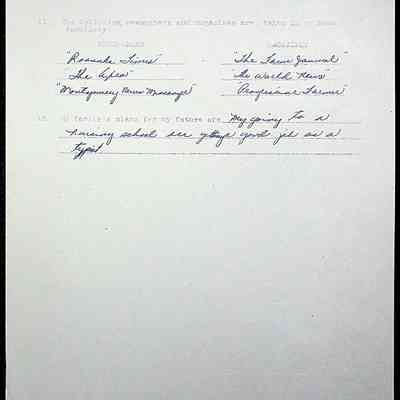 The following newspapers and magazines are taken in my home
regularly:
NEWSPAPERS MAGAZINES
"Roanoke Times" "The Farm Journal"
"The Afro" "The World News"
"Montgomery News Messenger" "Progressive Farmer"
My family's plans for my future are my going to a
nursing school or getting a good job as a
typist